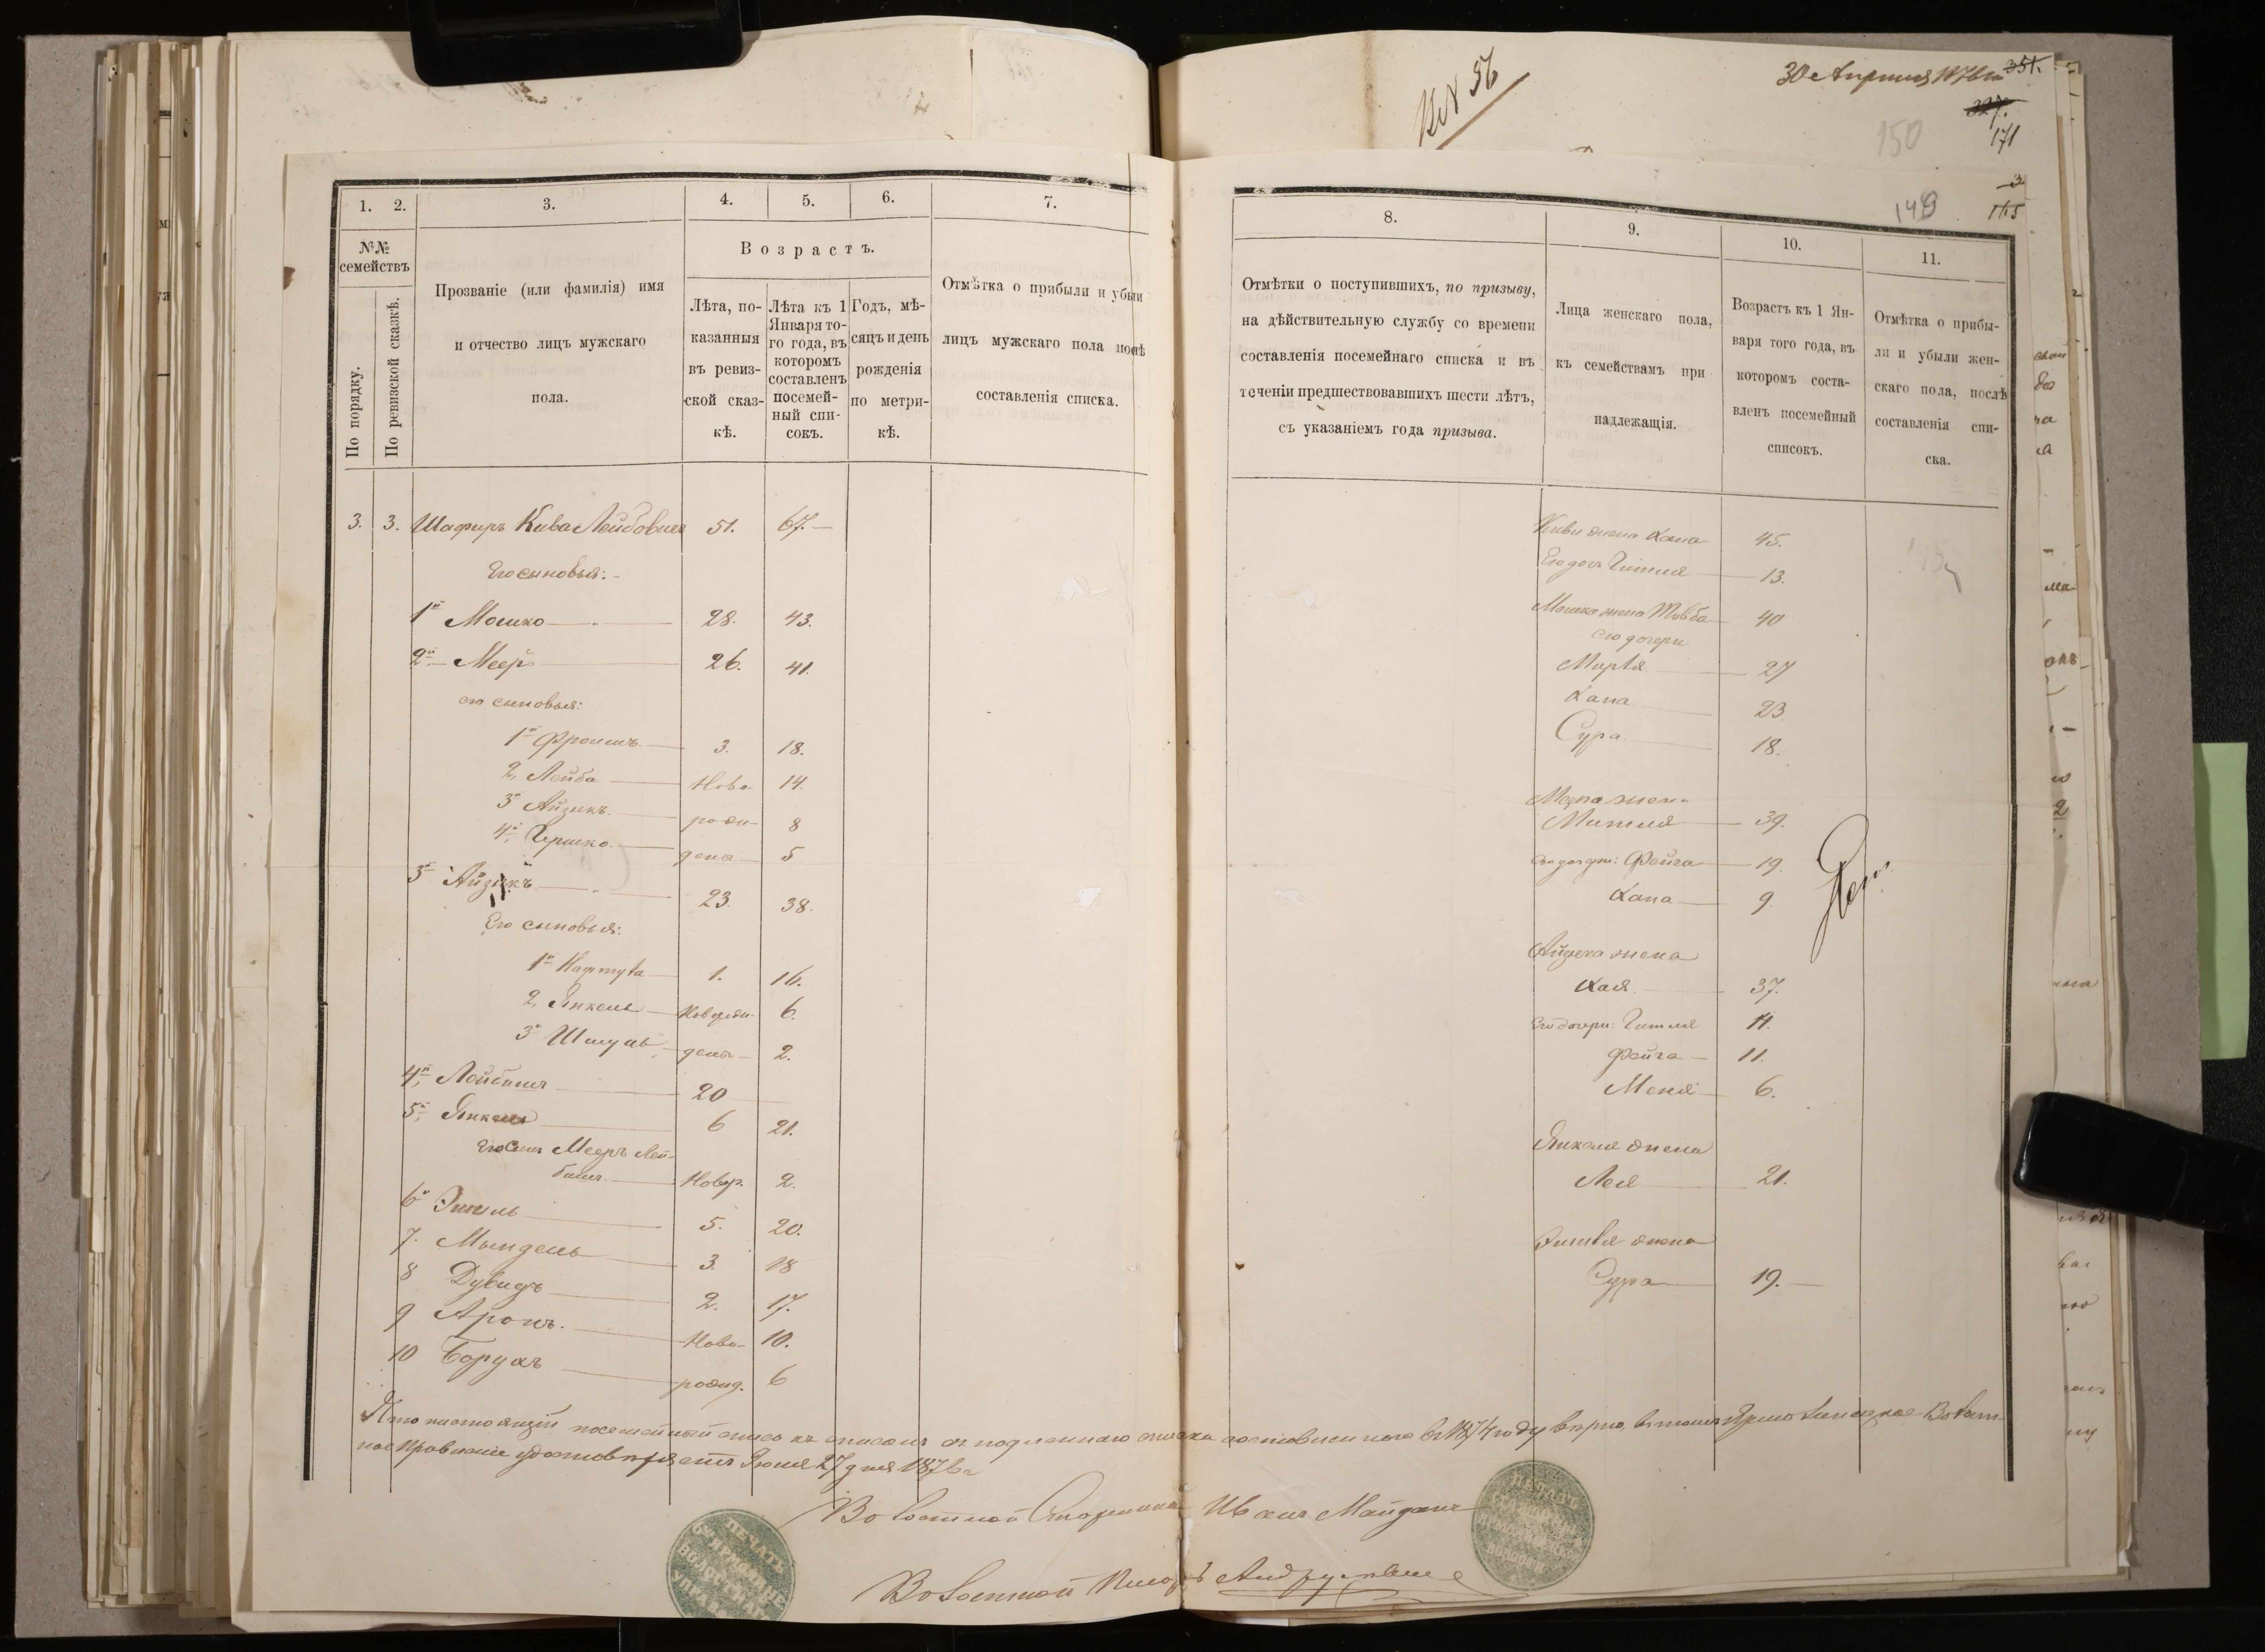 КѢ № 56
30 Апрѣля 1876 г.
351.
327.
171
150
3
148
165
1. 2. 3. 4. 5. 6. 7.
№№ семействъ
По порядку.
По ревизской сказкѣ.
Прозваніе (или фамилія) имя
и отчество лицъ мужскаго
пола.
Возрастъ.
Лѣта, по-
казанныя
въ ревиз-
ской сказ-
кѣ.
Лѣта къ 1
Января то-
го года, въ
которомъ
составленъ
посемей-
ный спи-
сокъ.
Годъ, мѣ-
сяцъ и день
рожденія
по метри-
кѣ.
Отмѣтка о прибыли и убыли
лицъ мужскаго пола послѣ
составленія списка.
3. 3. Шафиръ Кива Лейбовичъ 51. 67.
Его сыновья:
1й Мошко 28. 43.
2й Мееръ 26. 41.
его сыновья:
1й Фроимъ 3. 18.
2, Лейба Ново- 14.
3й Айзикъ. рож- 8
4й Гершко. дена 5
3й Айзикъ 23. 38.
Его сыновья:
1й Нафтула 1. 16.
2, Янкель Новорож- 6.
3й Шмуль дены 2.
4й Лейбишъ 20
5й Янкель 6 21.
Его сынъ Мееръ Лей-
бишъ Новор. 2.
6й Эншль 5. 20.
7. Мындель 3. 18
8 Дувидъ 2. 17.
9 Аронъ. Ново- 10.
10 Борухъ рожд. 6
8. 9. 10. 11.
Отмѣтки о поступившихъ, по призыву,
на дѣйствительную службу со времени
составленія посемейнаго списка и въ
теченіи предшествовавшихъ шести лѣтъ,
съ указаніемъ года призыва.
Лица женскаго пола,
къ семействамъ при
надлежащія.
Возрастъ къ 1 Ян-
варя того года, въ
которомъ соста-
вленъ посемейный
списокъ.
Отмѣтка о прибы-
ли и убыли жен-
скаго пола, послѣ
составленія спи-
ска.
Кивы жена Хана 45.
Его дочь Гитля 13.
Мошка жена Товба 40
его дочери
Мирля 27
Хана 23.
Сура 18.
Меера жена
Матля 39.
его дочери: Фейга 19.
Хана 9.
Айзика жена
Хая 37.
Его дочери: Гитля 14.
Фейга 11.
Меня 6.
Янкеля жена
Лея 21.
Эншля жена
Сура 19.
Что настоящій посемейный списокъ списанъ съ подленнаго списка составленнаго въ 1874 году вѣрно, въ томъ Ярмолинецкое Волост-
ное Правленіе удостовѣряетъ Іюня 27 дня 1876 г.
Волостной Старшина Иванъ Майданъ
Волостной Писарь